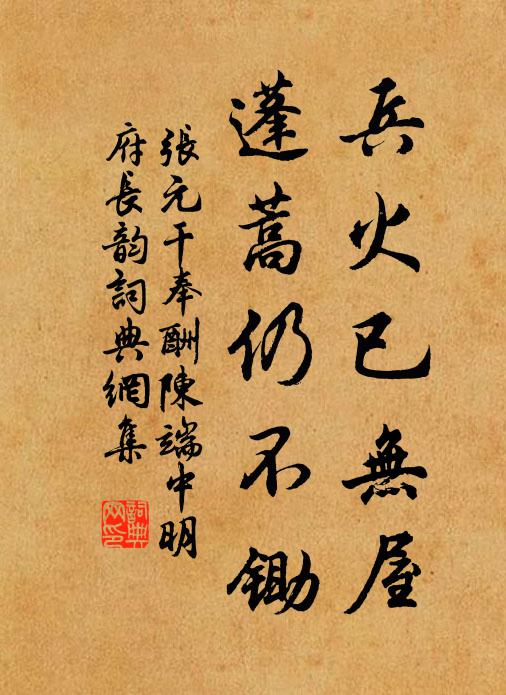 兵火已無屋
蓬蒿仍不鋤
張元干奉酬陳端中明
府長韵詞典網集
詞典
网印